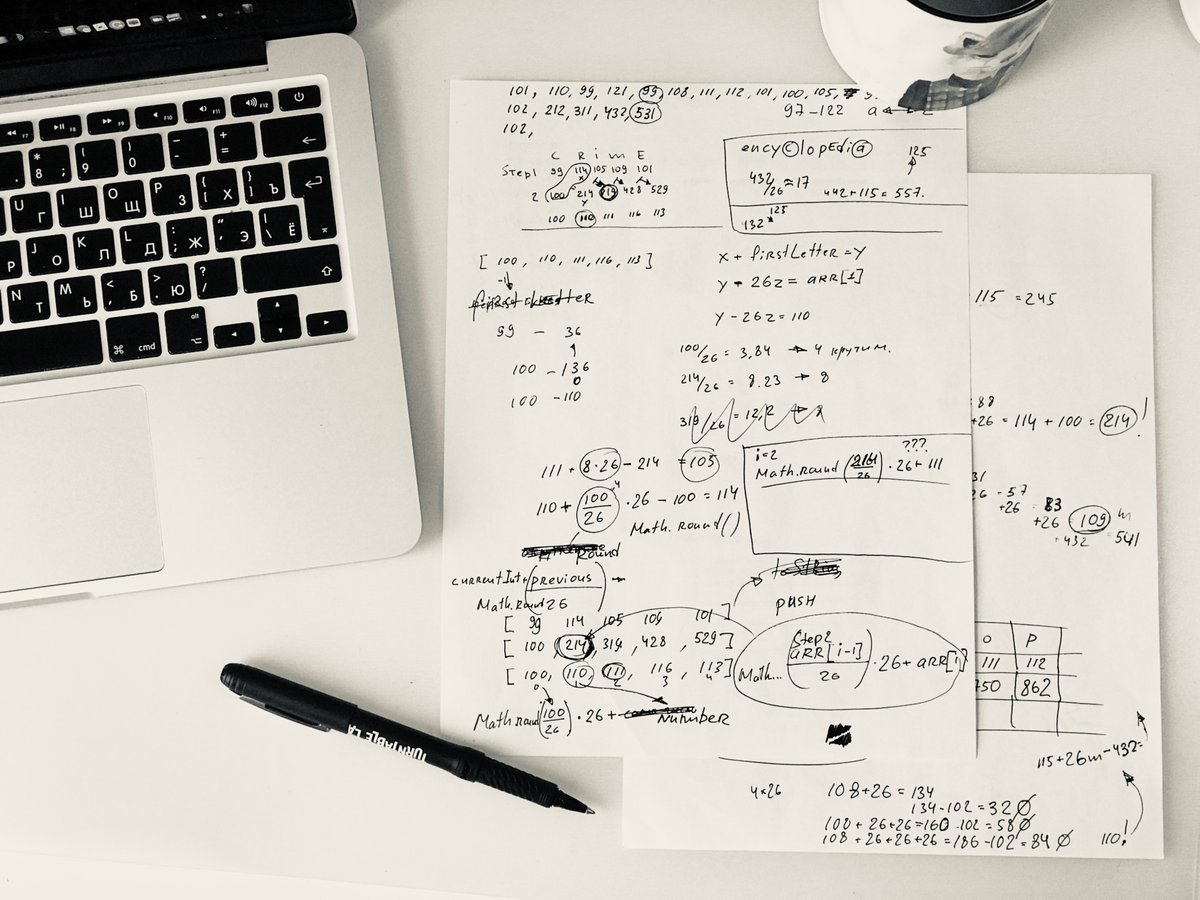 101, 110, 99, 121, 99, 108, 111, 112, 101, 100, 105,
97-122 a z
102, 212, 311, 432, 531
102,
C R i m E
Step1 99 114 105 109 101
x
2 100 214 319 428 529
y
100 110 111 116 113
encyclopEdia 125
432/26 = 17 442+115 = 557.
432 125
[ 100, 110, 111, 116, 113 ]
x + firstLetter = y
y - 26z = aRR[1]
y - 26z = 110
99 - 36
100 - 136
0
100 - 110
100/26 = 3,84 → 4 крутим.
214/26 = 8.23 → 8
319/26 = 12,2
111 + 8·26 - 214 = 105
110 + 100/26 ·26 - 100 = 114
4
Math.round()
i=2
???
Math.round ( /26) · 26 + 111
Round
currentInt + (previous)
Math.Round 26
toString
PUSH
[ 99 114 105 109 101 ]
[ 100, 214, 319, 428, 529 ]
[ 100, 110, 111, 116, 113 ]
0 1 2 3 4
Math.round (100/26) · 26 + Number
Step2
Math... (aRR[i-1]/26) · 26 + aRR[i]
115 = 245
88
+26 = 114 + 100 = 214 !
31
26 - 57
+26 83
+26 109 m
+432 541
o P
111 112
750 862
115+26m-432=
4×26
108+26 = 134
134-102 = 32 Ø
108 + 26+26 = 160 -102 = 58 Ø
108 + 26+26+26 = 186-102 = 84 Ø
110!
TURNTABLE LA
F7 F8 F9 F10 F11 F12
* 8 ; ( 9 ) 0 _ - + =
U Г I Ш O Щ P З { [ Х } ] Ъ
J О K Л L Д : ; Ж " ' Э | \ Ё
N Т M Ь < , Б > . Ю ? /
⌘ cmd alt ⌥